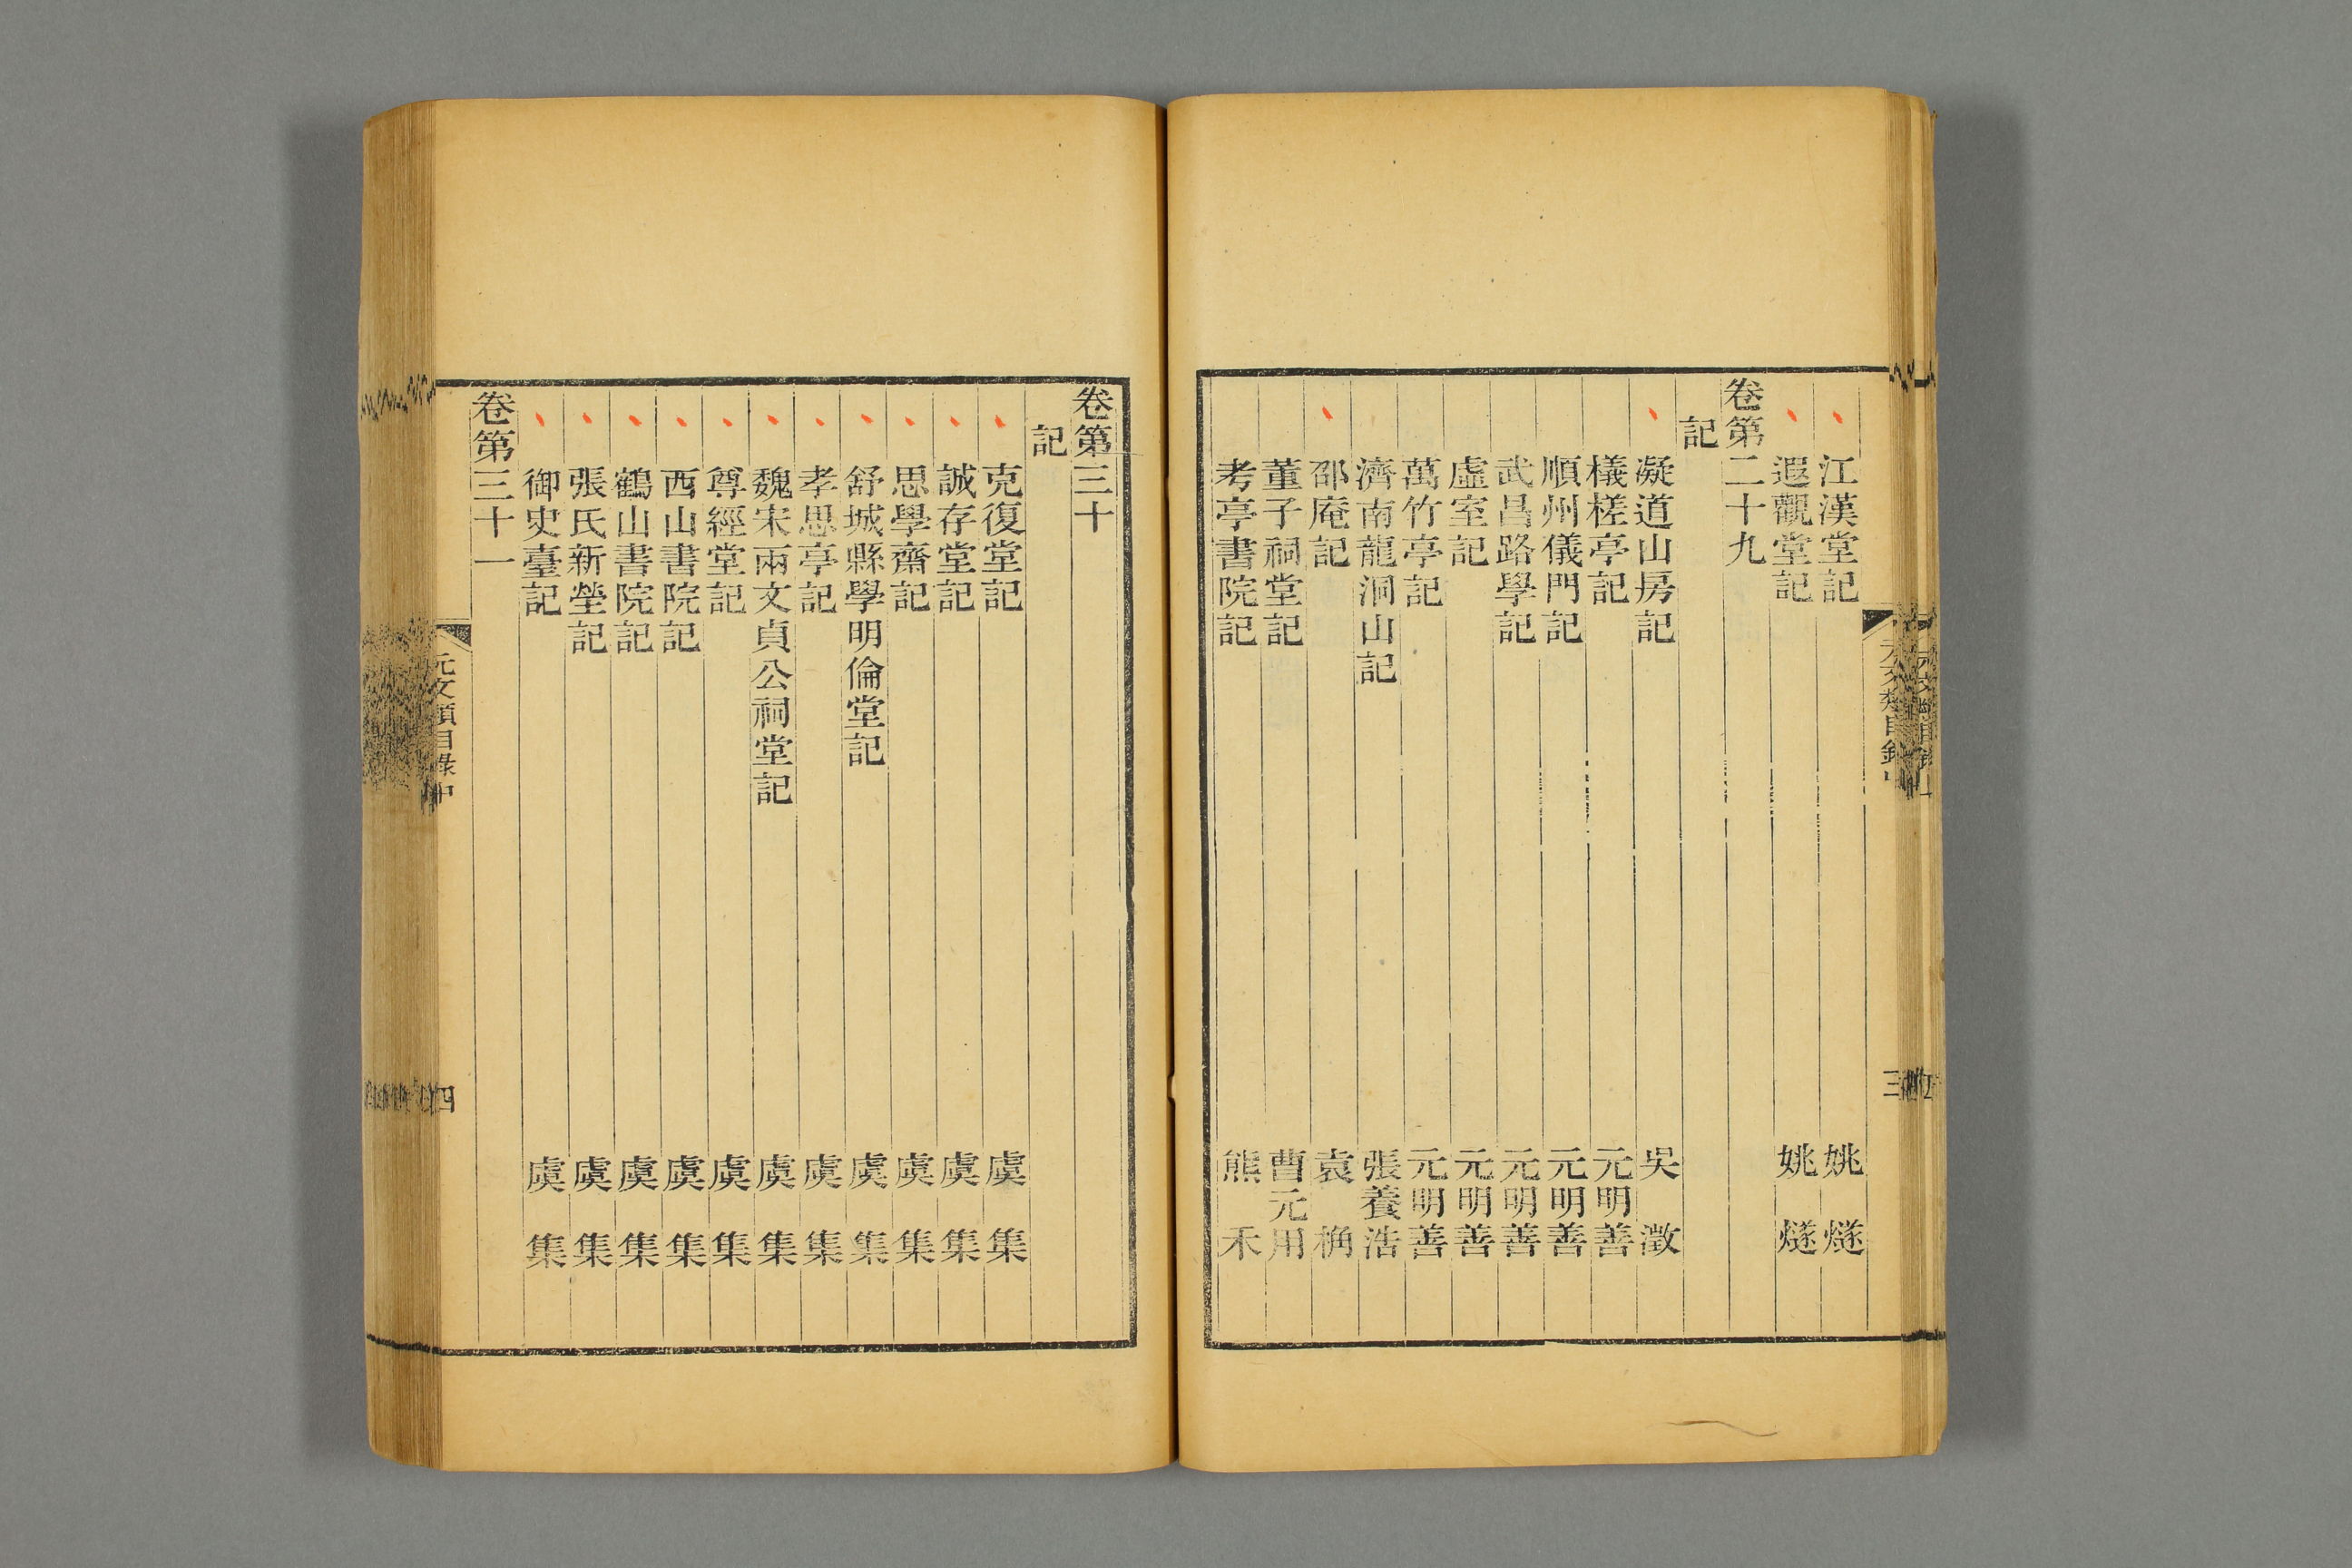 江漢堂記 姚燧
遐觀堂記 姚燧
卷第二十九
記
凝道山房記 吳澂
檥槎亭記 元明善
順州儀門記 元明善
武昌路學記 元明善
虛室記 元明善
萬竹亭記 元明善
濟南龍洞山記 張養浩
邵庵記 袁桷
董子祠堂記 曹元用
考亭書院記 熊禾
卷第三十
記
克復堂記 虞集
誠存堂記 虞集
思學齋記 虞集
舒城縣學明倫堂記 虞集
孝思亭記 虞集
魏宋兩文貞公祠堂記 虞集
尊經堂記 虞集
西山書院記 虞集
鶴山書院記 虞集
張氏新塋記 虞集
御史臺記 虞集
卷第三十一
元文類目錄中
四